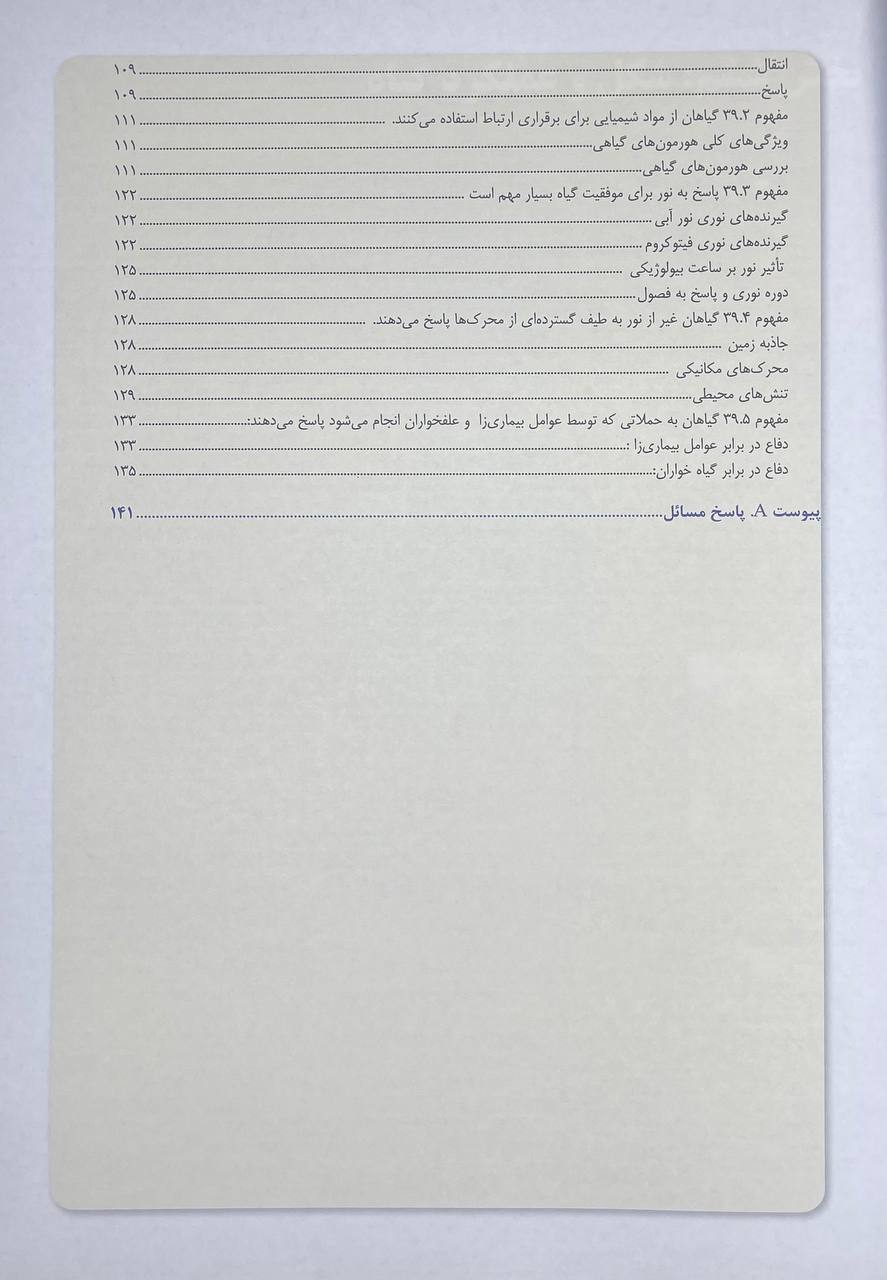 انتقال........................................ ۱۰۹
پاسخ........................................ ۱۰۹
مفهوم ۳۹.۲ گیاهان از مواد شیمیایی برای برقراری ارتباط استفاده می‌کنند. ........................................ ۱۱۱
ویژگی‌های کلی هورمون‌های گیاهی........................................ ۱۱۱
بررسی هورمون‌های گیاهی........................................ ۱۱۱
مفهوم ۳۹.۳ پاسخ به نور برای موفقیت گیاه بسیار مهم است ........................................ ۱۲۲
گیرنده‌های نوری نور آبی ........................................ ۱۲۲
گیرنده‌های نوری فیتوکروم ........................................ ۱۲۲
تأثیر نور بر ساعت بیولوژیکی ........................................ ۱۲۵
دوره نوری و پاسخ به فصول........................................ ۱۲۵
مفهوم ۳۹.۴ گیاهان غیر از نور به طیف گسترده‌ای از محرک‌ها پاسخ می‌دهند. ........................................ ۱۲۸
جاذبه زمین ........................................ ۱۲۸
محرک‌های مکانیکی ........................................ ۱۲۸
تنش‌های محیطی........................................ ۱۲۹
مفهوم ۳۹.۵ گیاهان به حملاتی که توسط عوامل بیماری‌زا و علفخواران انجام می‌شود پاسخ می‌دهند:........................................ ۱۳۳
دفاع در برابر عوامل بیماری‌زا :........................................ ۱۳۳
دفاع در برابر گیاه خواران:........................................ ۱۳۵
پیوست A. پاسخ مسائل........................................ ۱۴۱